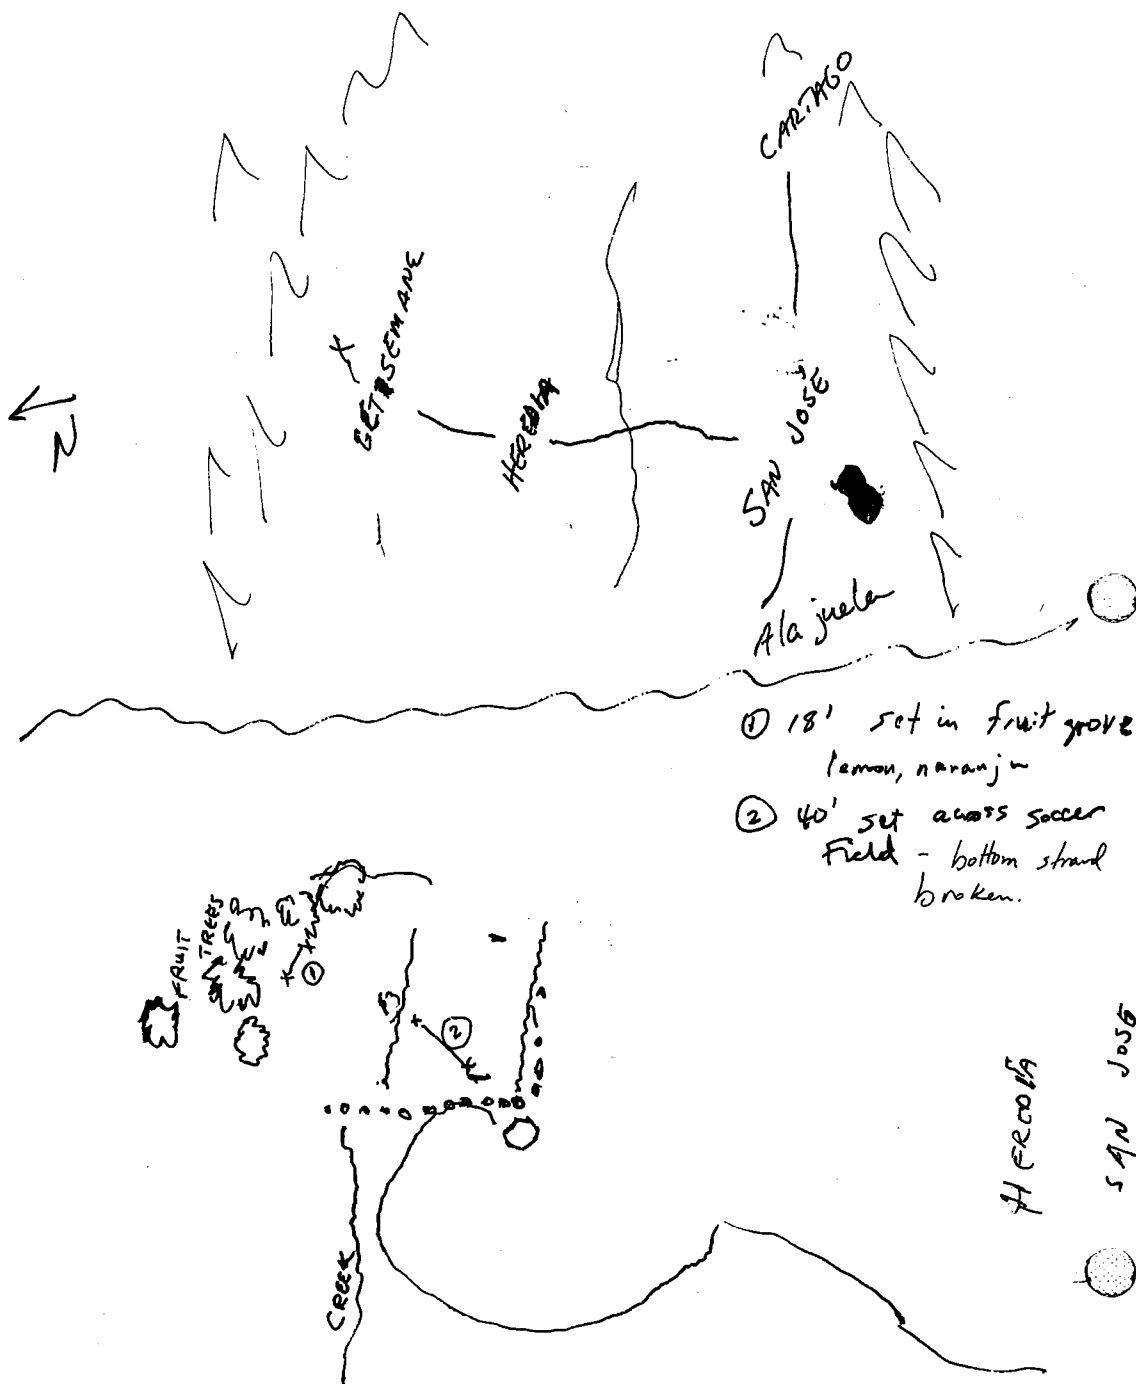 CARTAGO
GETSEMANE
HEREDIA
SAN JOSE
N
Alajuela
① 18' set in fruit grove
lemon, naranja
② 40' set across soccer
Field - bottom strand
broken.
FRUIT
TREES
①
②
CREEK
HEREDIA
SAN JOSE